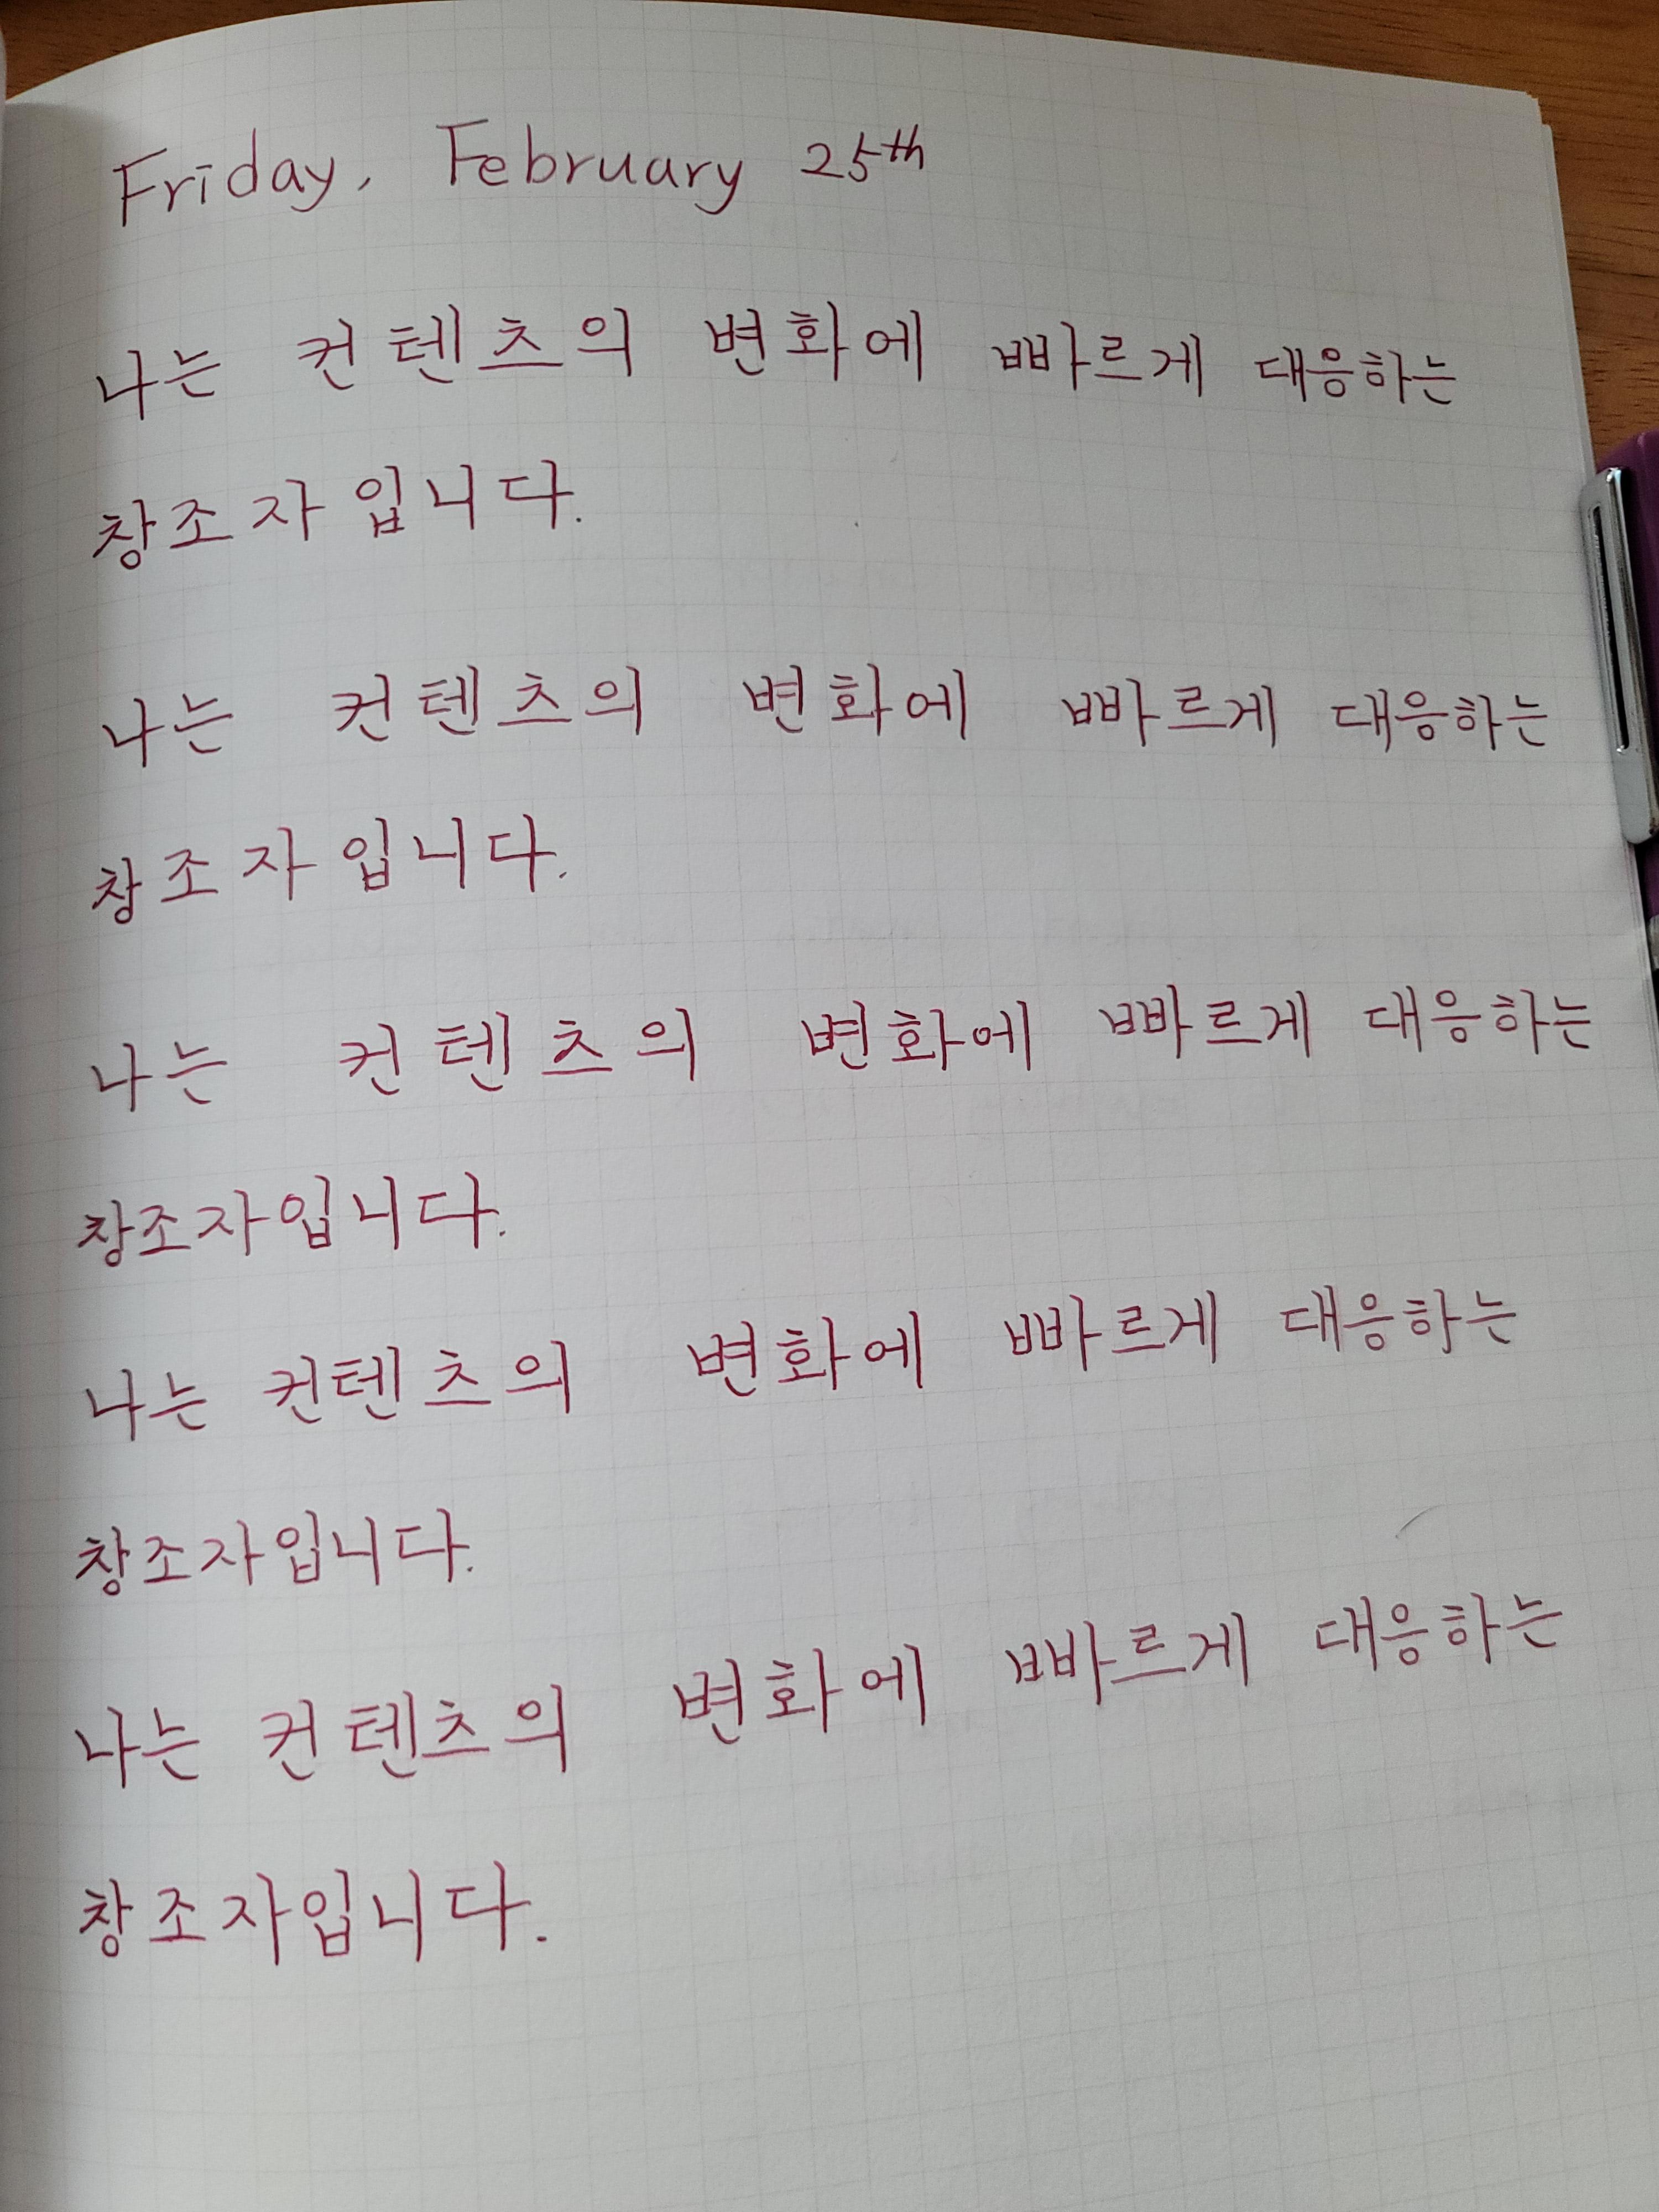 Friday, February 25th
나는 컨텐츠의 변화에 빠르게 대응하는
창조자입니다.
나는 컨텐츠의 변화에 빠르게 대응하는
창조자입니다.
나는 컨텐츠의 변화에 빠르게 대응하는
창조자입니다.
나는 컨텐츠의 변화에 빠르게 대응하는
창조자입니다.
나는 컨텐츠의 변화에 빠르게 대응하는
창조자입니다.